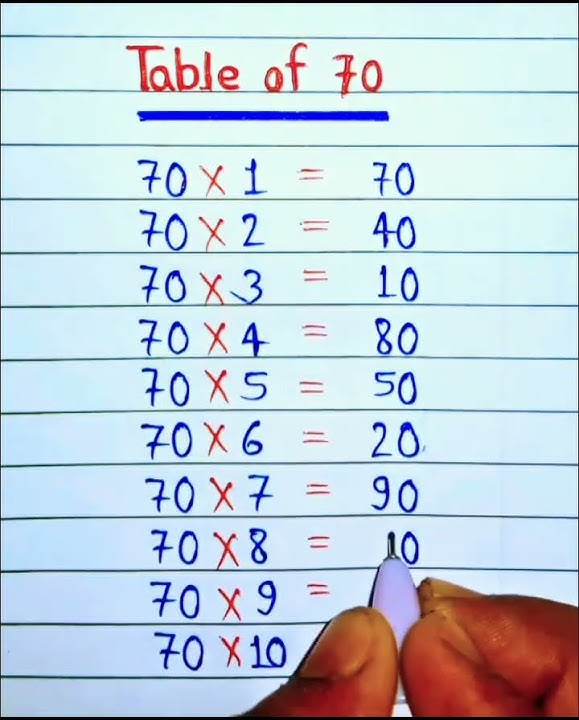 Table of 70
70 × 1 = 70
70 × 2 = 40
70 × 3 = 10
70 × 4 = 80
70 × 5 = 50
70 × 6 = 20
70 × 7 = 90
70 × 8 = 0
70 × 9 =
70 × 10